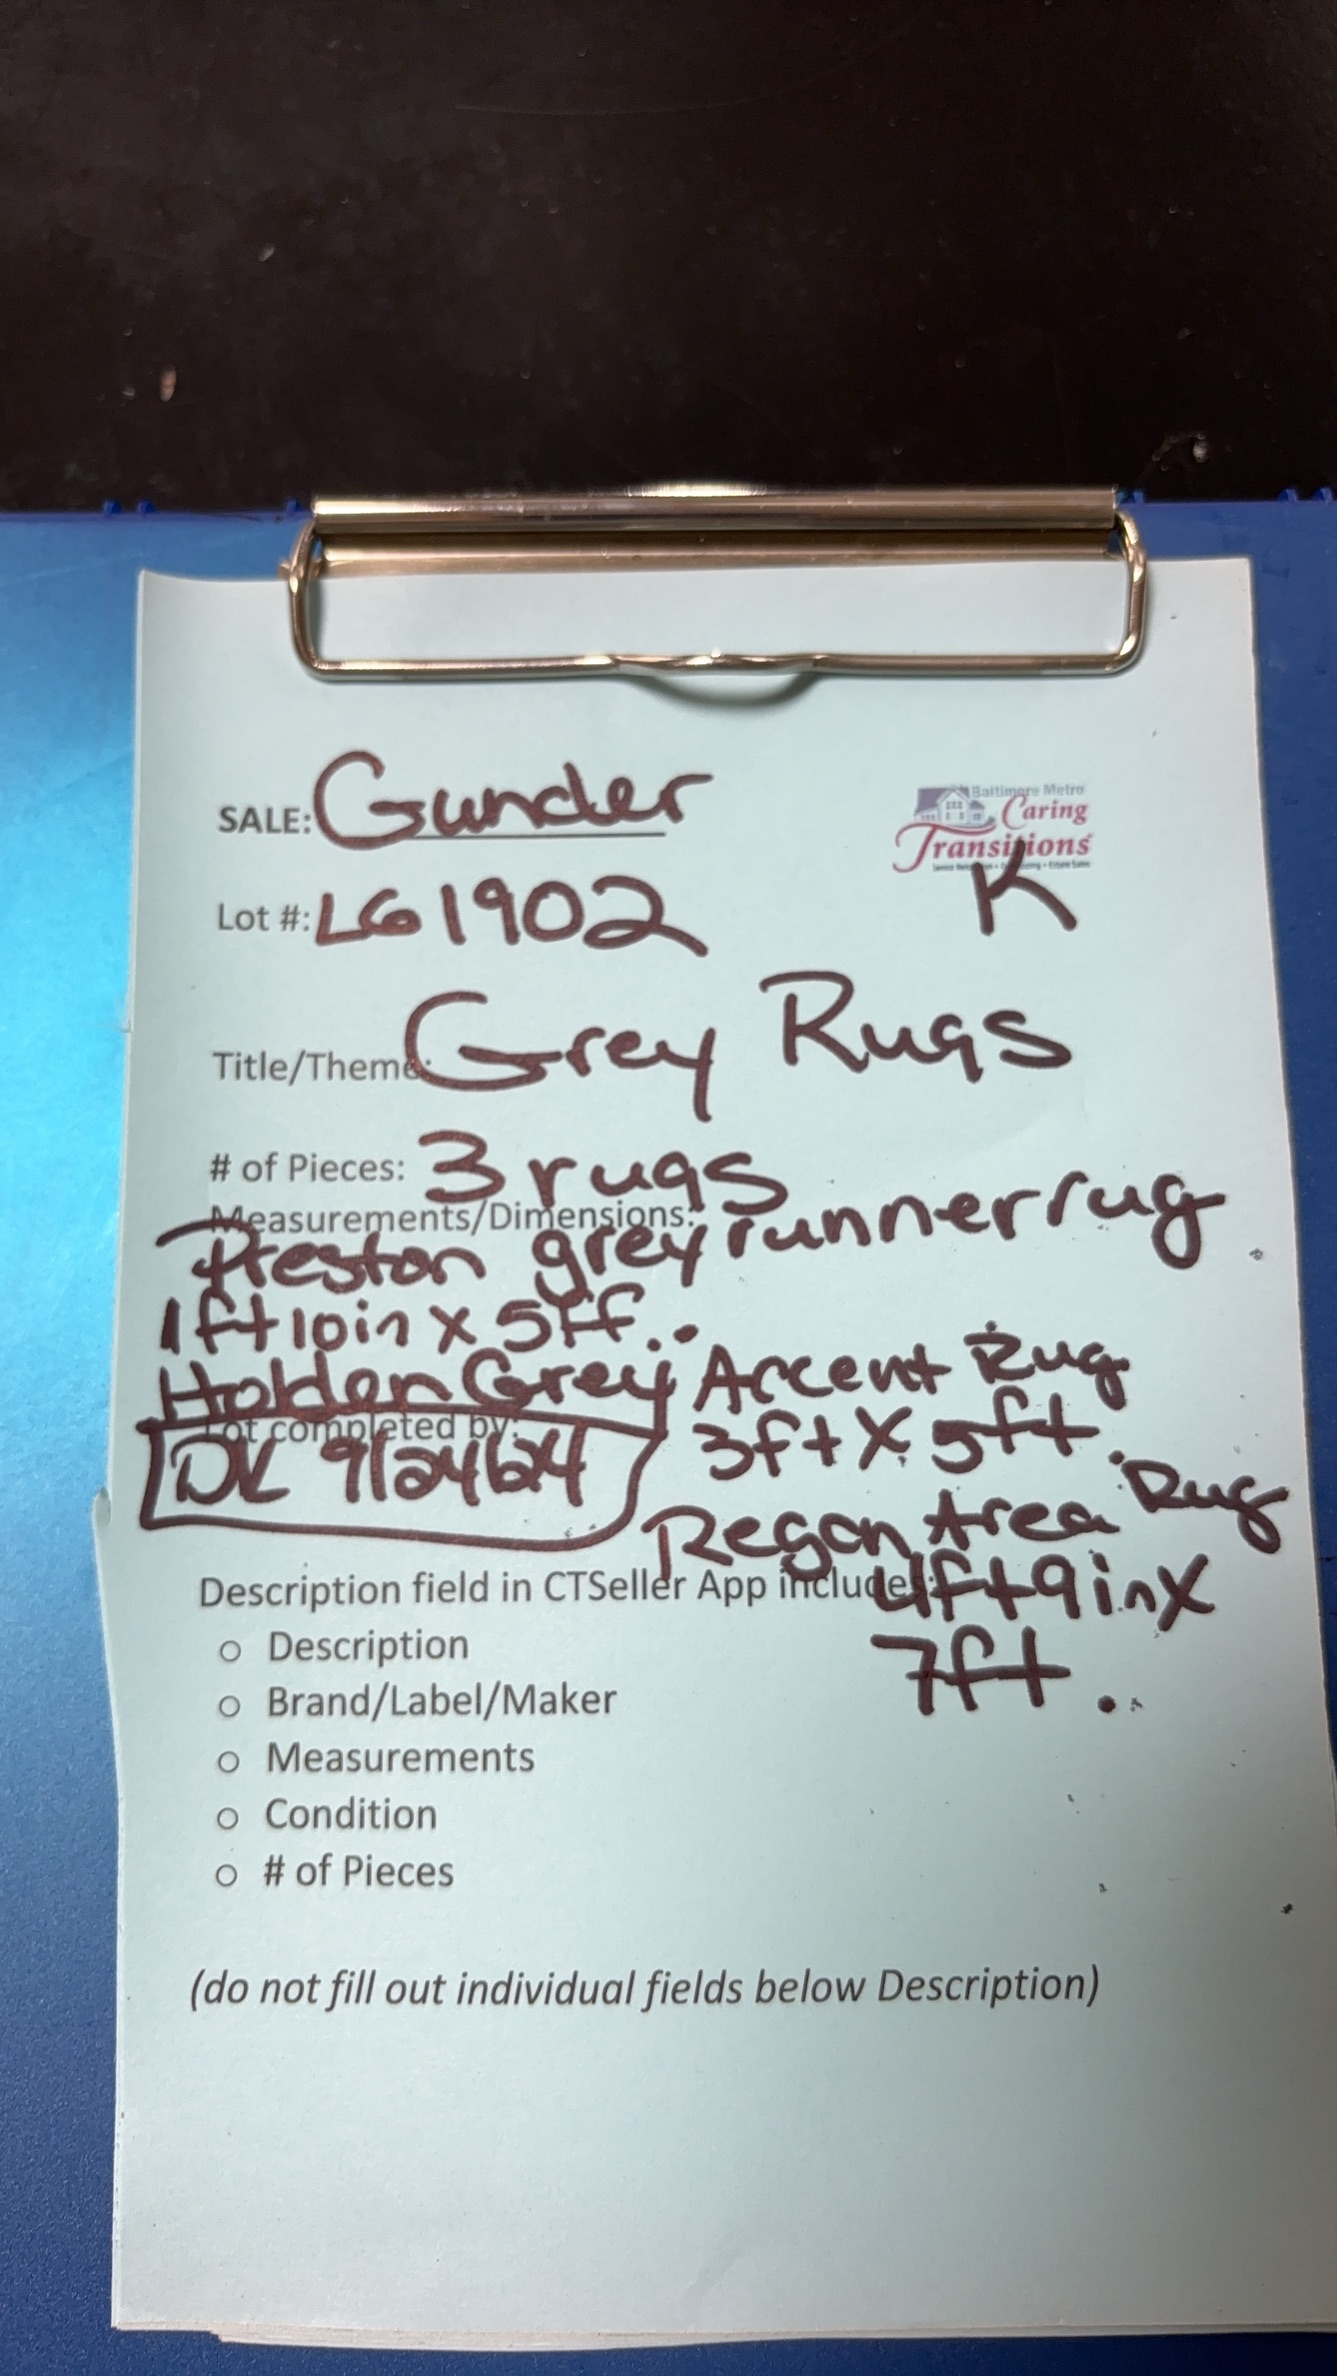 SALE: Gunder
Baltimore Metro
Caring
Transitions
K
Lot #: LG1902
Title/Theme: Grey Rugs
# of Pieces: 3 rugs
Measurements/Dimensions:
Preston grey runner rug
1ft10in x 5ft..
Holden Grey Accent Rug
3ft X 5ft.
Lot completed by:
DK 9/24/24
Regan Area Rug
4ft9inX
7ft.
Description field in CTSeller App includes:
o Description
o Brand/Label/Maker
o Measurements
o Condition
o # of Pieces
(do not fill out individual fields below Description)